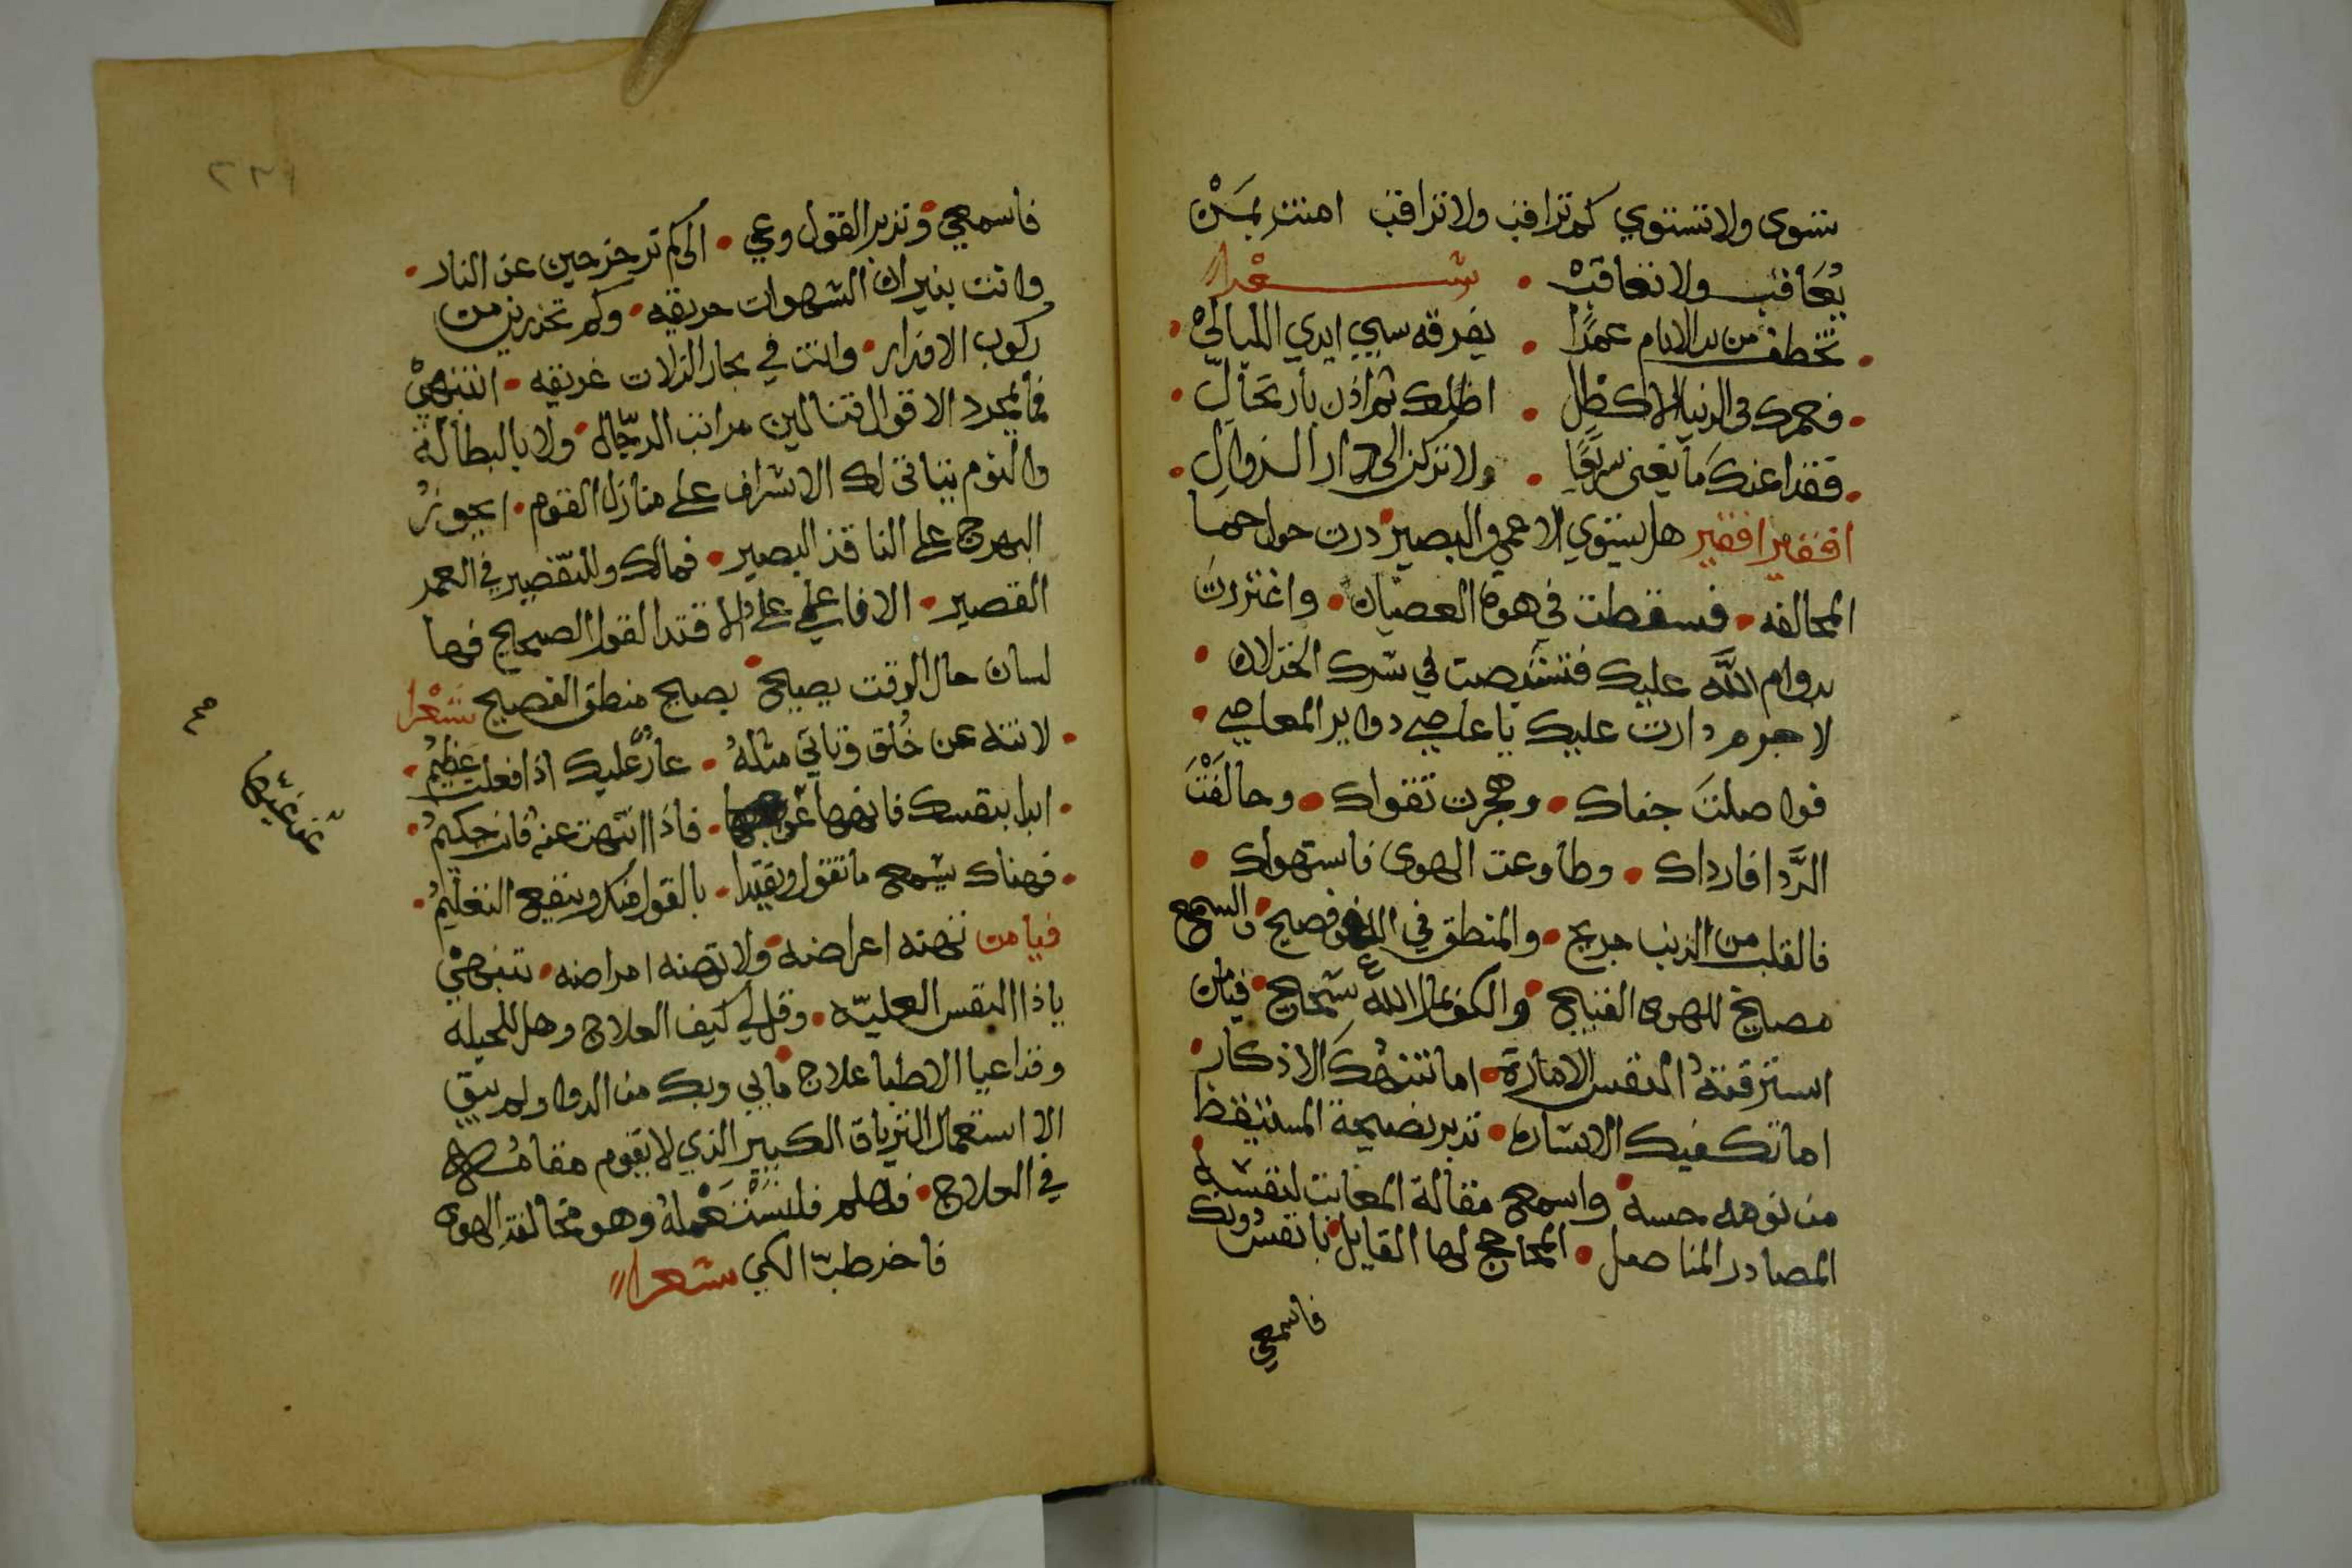 تنوى ولا تستوي كم تراقب ولا تراقب امنت بمن
يُعَاقب ولا تعاقبْ • شعرا
تخطف من يد الايام عمدًا • يفرقه سبي ايدي الليالي •
فعمرك في الدنيا الا كظل • اظلك ثم اذن بارتحال •
فقد اعنك ما يفنى سريعًا • ولا تركن الى دار الزوال •
افقير افقير هل يستوي الاعمى والبصير درت حول حما
المخالفه • فسقطت في هوة العصيان • واغتررت
بدوام الله عليك في شرك الخذلان •
لا جرم دارت عليك يا عاصي دواير المعاصي •
فواصلت جفاك • وهجرت تقواك • وحالفت
الردا فارداك • وطاوعت الهوى فاستهواك •
فالقلب من الذنب جريح • والمنطق في اللغو فصيح • والسمع
مصايخ للهوى القبيح • والكف بمال الله شحاح • فيا من
استرقته النفس الاماره • اما تنبهك الاذكار •
اما تكفيك الاشاره • تدبر نصيحة المستيقظ
من نومه حسه • واسمع مقالة المعاتب لنفسه
المصادر المناصل • المحاجج لها القايل يا نفس دونك
فاسمعي
فاسمعي • وتدبر القول وعي • الى كم تزحزحين عن النار •
وانت بنيران الشهوات حريقه • وكم تحذرين من
ركوب الاقدار • وانت في بحار الزلات غريقه • انتبهي
فما بمجرد الاقوال تنالين مراتب الرجال • ولا بالبطالة
والنوم يتاتى لك الاشراف على منازل القوم • ايجوز
البهرج على الناقد البصير • فمالك وللتقصير في العمر
القصير • الا فاعلمي على الاقتدا القول الصحيح فها
لسان حال الوقت يصيح • بصايح منطق الفصيح شعرا
• لا تنه عن خُلق وتاتي مثلهُ • عارٌ عليك اذا فعلت عظيمُ •
• ابدا بنفسك فانهها عن غيها • فاذا انتهت عنه فانت حكيمُ •
• فهناك يسمع ما تقول ويقتدا • بالقول منك وينفع التعليمُ •
فيا من نهته اعراضه • ولا تهنه امراضه • تنبهي
يا ذا النفس العليّه • وقل لي كيف العلاج وهل للحيله
وقد اعيا الاطبا علاج ما بي وبك من الدوا ولم يبق
الا استعمال الترياق الكبير الذي لا يقوم مقامه
في العلاج • فلهلم فلنستعمله وهو مخالفة الهوى
فاخر طبّ الكي شعرا
عن غيها